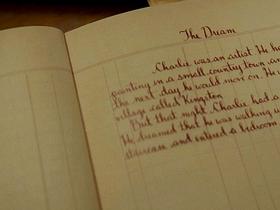 The Dream
Charlie was an artist. He h
painting in a small country town, an
the next day he would move on. He
village called Kingston
But that night, Charlie had a
He dreamed that he was walking u
staircase and entered a bedroom